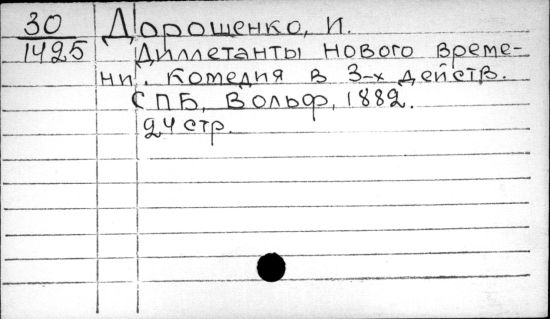 30 Дорошенко, И.
1425 Диллетанты нового време-
ни. Комедия в 3-х действ.
СПБ, Вольф, 1882.
24 стр.